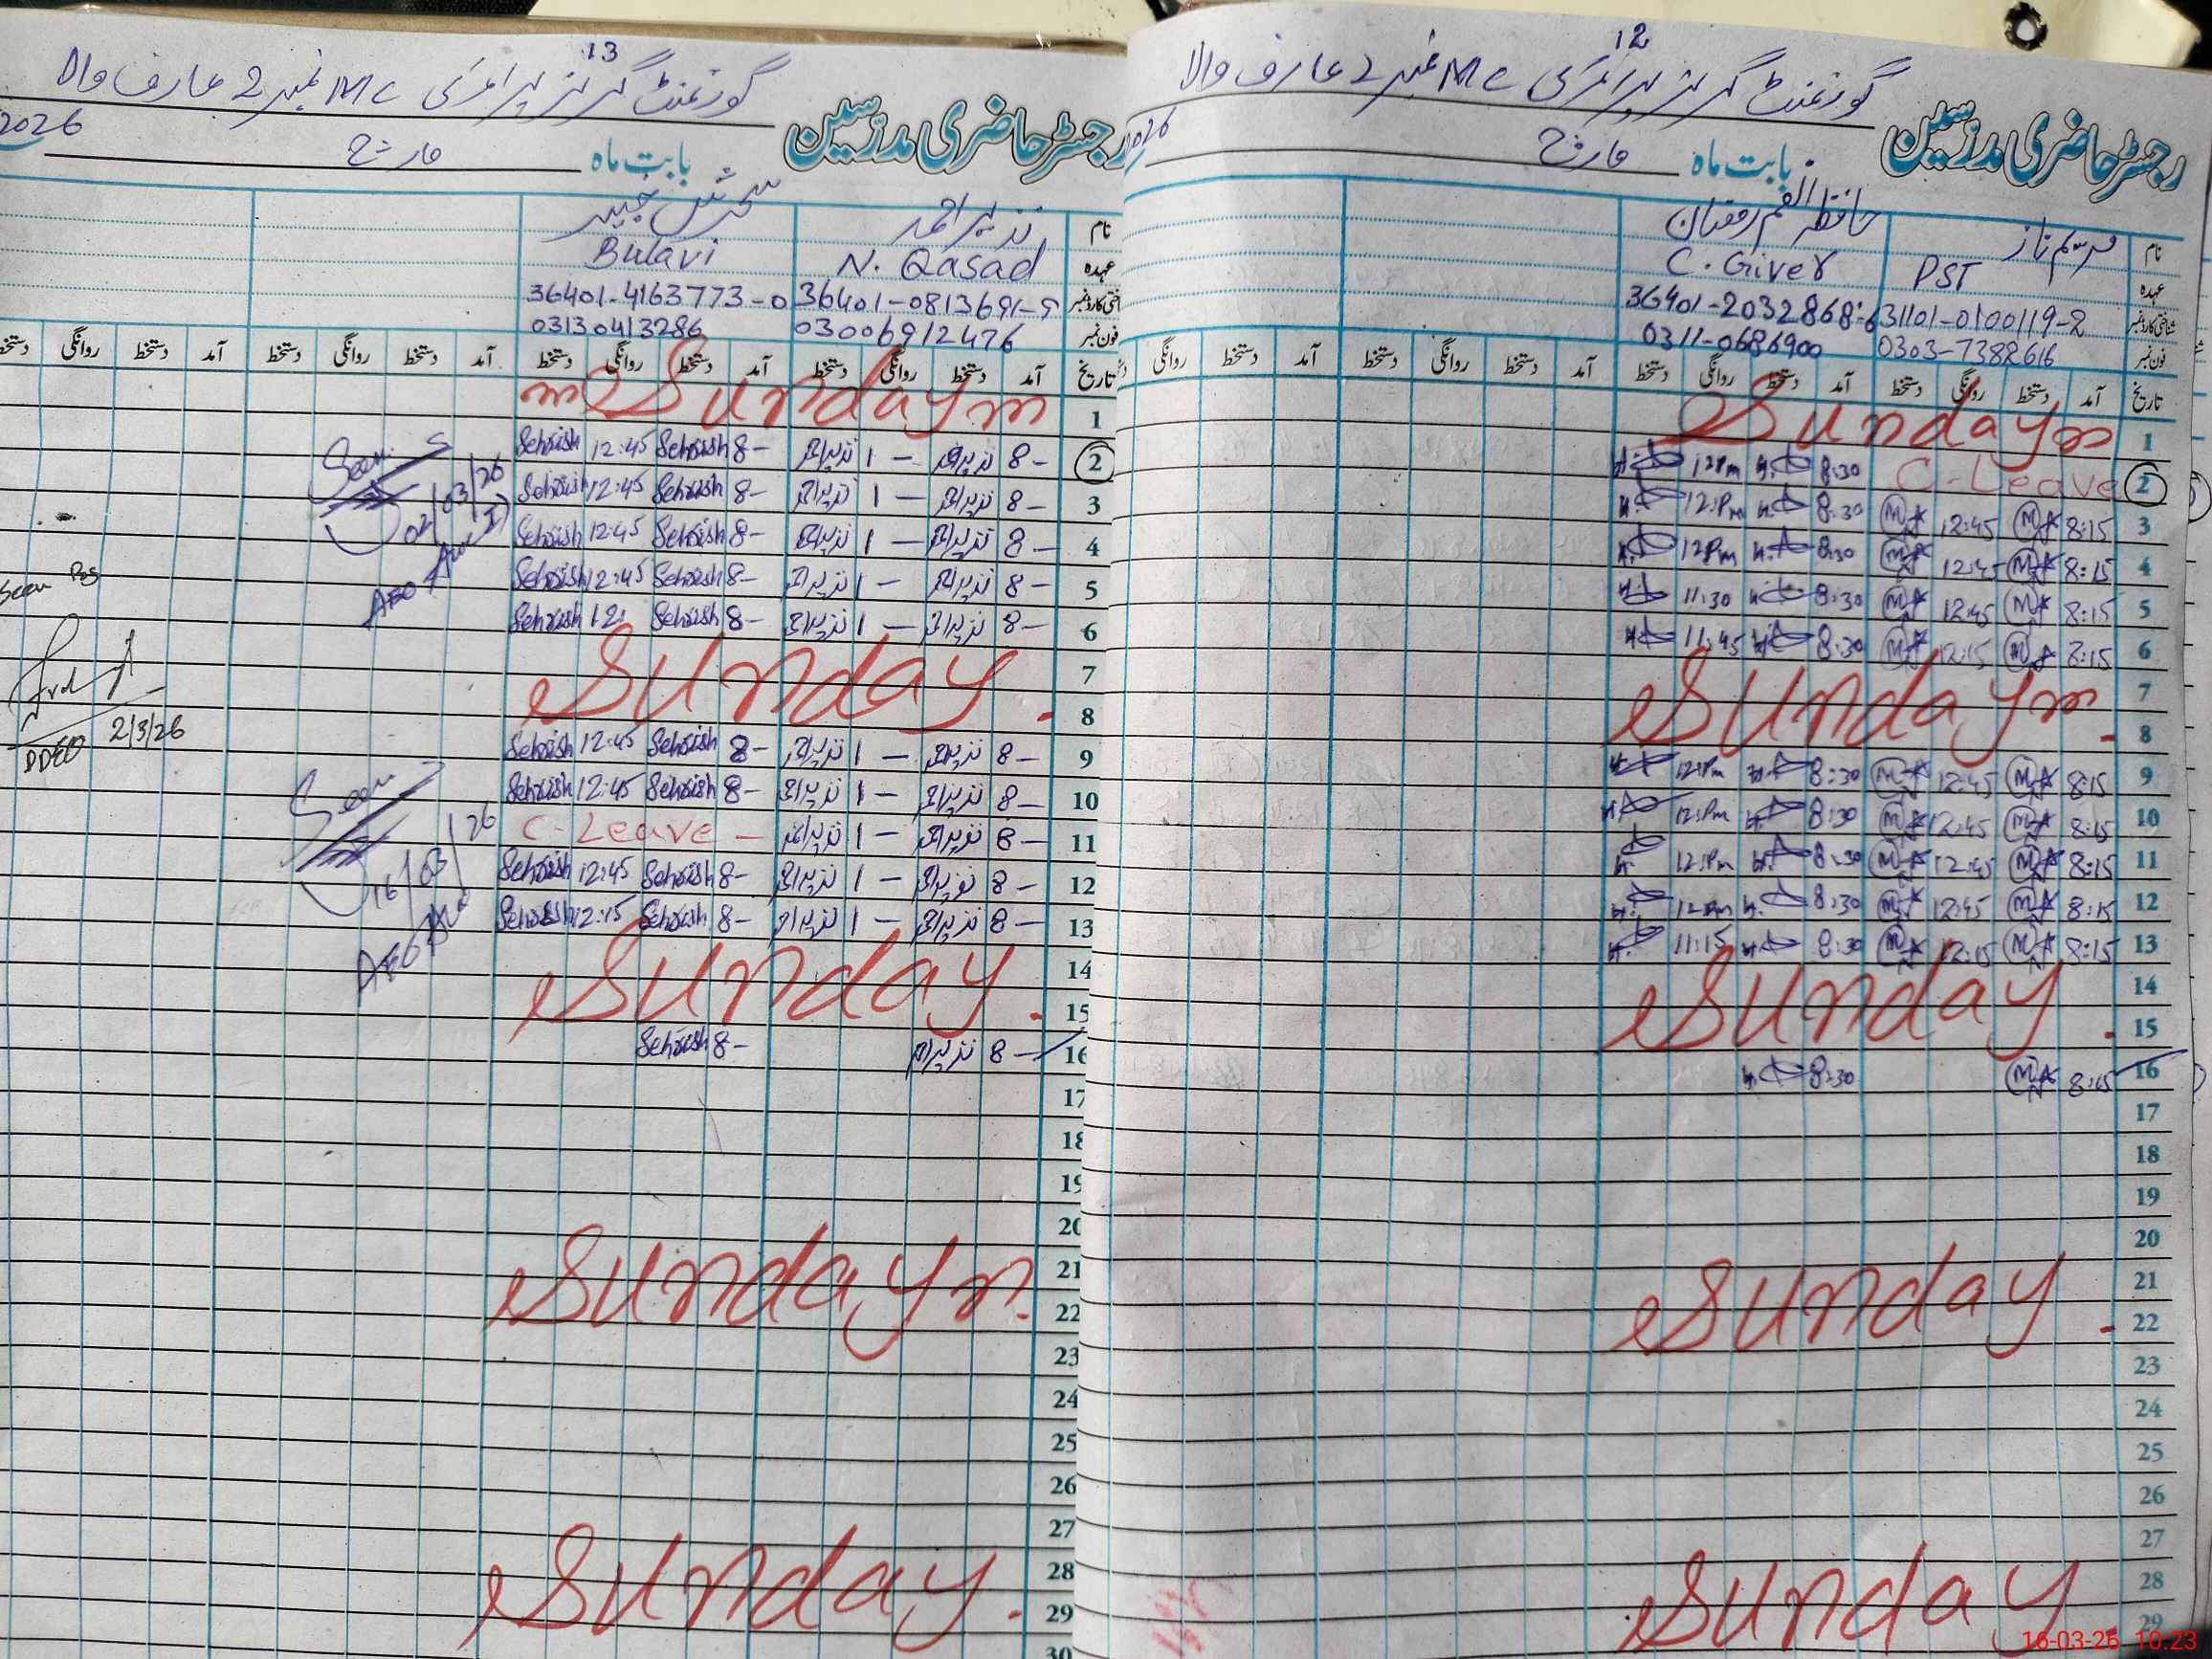 13
گورنمنٹ گرلز پرائمری MC نمبر 2 عارف والا
رجسٹر حاضری مدرسین
بابت ماہ مارچ 2026
نام نذیر احمد
عہدہ N. Qasad Bulavi
36401-0813691-9 36401-4163773-0
فون نمبر 03006912476 03130413286
تاریخ آمد دستخط روانگی دستخط آمد دستخط روانگی دستخط آمد دستخط روانگی دستخط
1 Sunday
2 8- نذیر احمد 1- نذیر احمد 8- Sehrish 12:45 Sehrish
3 8- نذیر احمد 1- نذیر احمد 8- Sehrish 12:45 Sehrish
4 8- نذیر احمد 1- نذیر احمد 8- Sehrish 12:45 Sehrish
5 8- نذیر احمد 1- نذیر احمد 8- Sehrish 12:45 Sehrish
6 8- نذیر احمد 1- نذیر احمد 8- Sehrish 12: Sehrish
7 Sunday
8
9 8- نذیر احمد 1- نذیر احمد 8- Sehrish 12:45 Sehrish
10 8- نذیر احمد 1- نذیر احمد 8- Sehrish 12:45 Sehrish
11 8- نذیر احمد 1- نذیر احمد C-Leave
12 8- نذیر احمد 1- نذیر احمد 8- Sehrish 12:45 Sehrish
13 8- نذیر احمد 1- نذیر احمد 8- Sehrish 12:15 Sehrish
14 Sunday
15
16 8- نذیر احمد 8- Sehrish
17
18
19
20
21 Sunday
22
23
24
25
26
27
28 Sunday
29
30
Seen
02/03/26
AEO
Seen
DDEO 2/3/26
Seen
16/03/26
AEO
12
گورنمنٹ گرلز پرائمری MC نمبر 2 عارف والا
رجسٹر حاضری مدرسین
بابت ماہ مارچ 2026
نام
عہدہ PST C. Giver
شناختی کارڈ نمبر 31101-0100119-2 36401-2032868-6
فون نمبر 0303-7382616 0311-0686900
تاریخ آمد دستخط روانگی دستخط آمد دستخط روانگی دستخط آمد دستخط روانگی دستخط آمد دستخط روانگی
1 Sunday
2 C-Leave 8:30 12Pm
3 8:15 12:45 8:30 12:Pm
4 8:15 12:45 8:30 12Pm
5 8:15 12:45 8:30 11:30
6 8:15 12:15 8:30 11:45
7 Sunday
8
9 8:15 12:45 8:30 12:Pm
10 8:15 12:45 8:30 12:Pm
11 8:15 12:45 8:30 12:Pm
12 8:15 12:45 8:30 12:Pm
13 8:15 12:15 8:30 11:15
14 Sunday
15
16 8:15 8:30
17
18
19
20
21 Sunday
22
23
24
25
26
27
28 Sunday
29
16-03-26 10:23